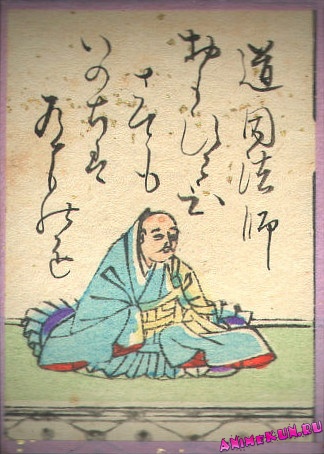 道因法師
おもひわひ
さても
いのちは
あるものを
ANIMEKUN.RU